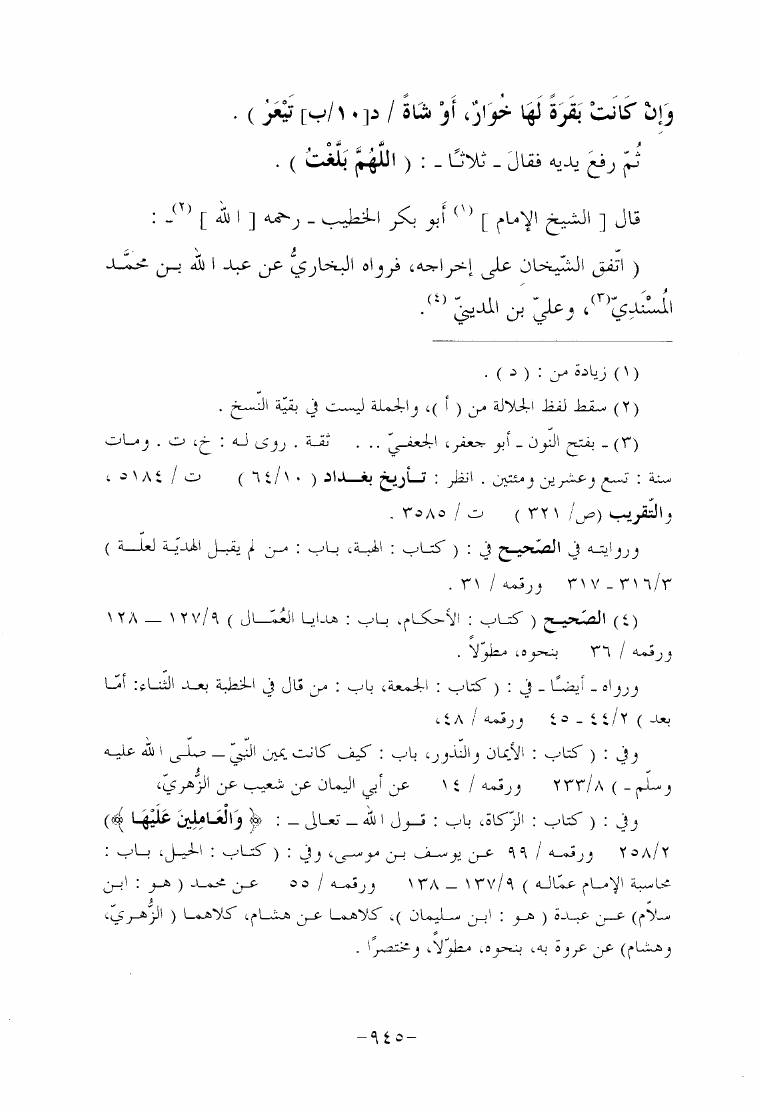 وَإِنْ كَانَتْ بَقَرَةً لَهَا خُوَارٌ، أَوْ شَاةً / د[١٠/ب] تَيْعَرُ ) .
ثُمّ رفعَ يديه فقالَ ـ ثلاثًا ـ : ( اللَّهُمَّ بَلَّغْتُ ) .
قال [ الشيخ الإمام ] (١) أبو بكر الخطيب ـ رحمه [ الله ] (٢)ـ :
( اتّفق الشّيخان على إخراجه، فرواه البخاريُّ عن عبد الله بن محمَّد
المُسْنَدِيّ(٣)، وعليّ بن المدينيّ (٤).
(١) زيادة من : ( د ) .
(٢) سقط لفظ الجلالة من ( أ )، والجملة ليست في بقيّة النّسخ .
(٣) ـ بفتح النّون ـ أبو جعفر، الجعفيّ ... ثقة . روى له : خ، ت . ومات
سنة : تسع وعشرين ومئتين . انظر : تأريخ بغداد ( ٦٤/١٠ ) ت / ٥١٨٤ ،
والتّقريب (ص/ ٣٢١ ) ت / ٣٥٨٥ .
وروايته في الصّحيح في : ( كتاب : الهبة، باب : من لم يقبل الهديّة لعلّة )
٣١٦/٣ ـ ٣١٧ ورقمه / ٣١ .
(٤) الصّحيح ( كتاب : الأحكام، باب : هدايا العُمّال ) ١٢٧/٩ ـ ١٢٨
ورقمه / ٣٦ بنحوه، مطوّلاً .
ورواه ـ أيضًا ـ في : ( كتاب : الجمعة، باب : من قال في الخطبة بعد الثّناء: أمّا
بعد ) ٤٤/٢ ـ ٤٥ ورقمه / ٤٨،
وفي : ( كتاب : الأيمان والنّذور، باب : كيف كانت يمين النّبيّ ـ صلّى الله عليه
وسلّم ـ ) ٢٣٣/٨ ورقمه / ١٤ عن أبي اليمان عن شعيب عن الزّهريّ،
وفي : ( كتاب : الزّكاة، باب : قول الله ـ تعالى ـ : ﴿ وَالْعَامِلِينَ عَلَيْهَا ﴾)
٢٥٨/٢ ورقمه / ٩٩ عن يوسف بن موسى، وفي : ( كتاب : الحيل، باب :
محاسبة الإمام عمّاله ) ١٣٧/٩ ـ ١٣٨ ورقمه / ٥٥ عن محمد ( هو : ابن
سلاّم) عن عبدة ( هو : ابن سليمان )، كلاهما عن هشام، كلاهما ( الزُّهريّ،
وهشام) عن عروة به، بنحوه، مطوّلاً، ومختصرًا .
−٩٤٥−